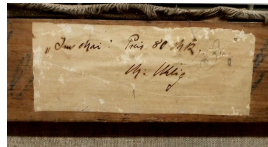 „Im Mai“ Preis 80 Mk.
M. Uhlig